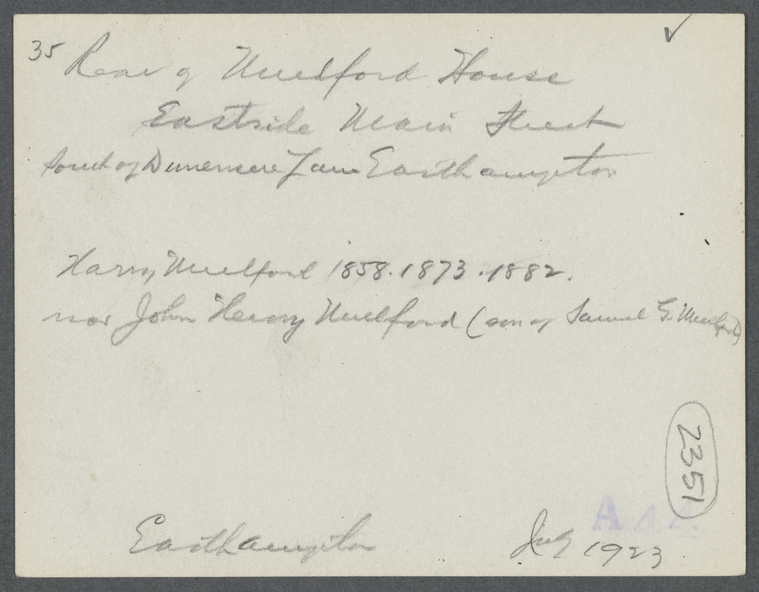 35 Rear of Mulford House
Eastside Main Street
South of Dunemere Lane Easthampton
Harry Mulford 1858.1873.1882.
now John Henry Mulford (son of Samuel G. Mulford)
2351
A 44
Easthampton July 1923